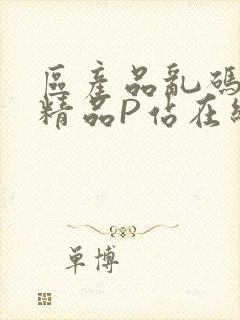 區產品亂碼
精品P佔在
單博